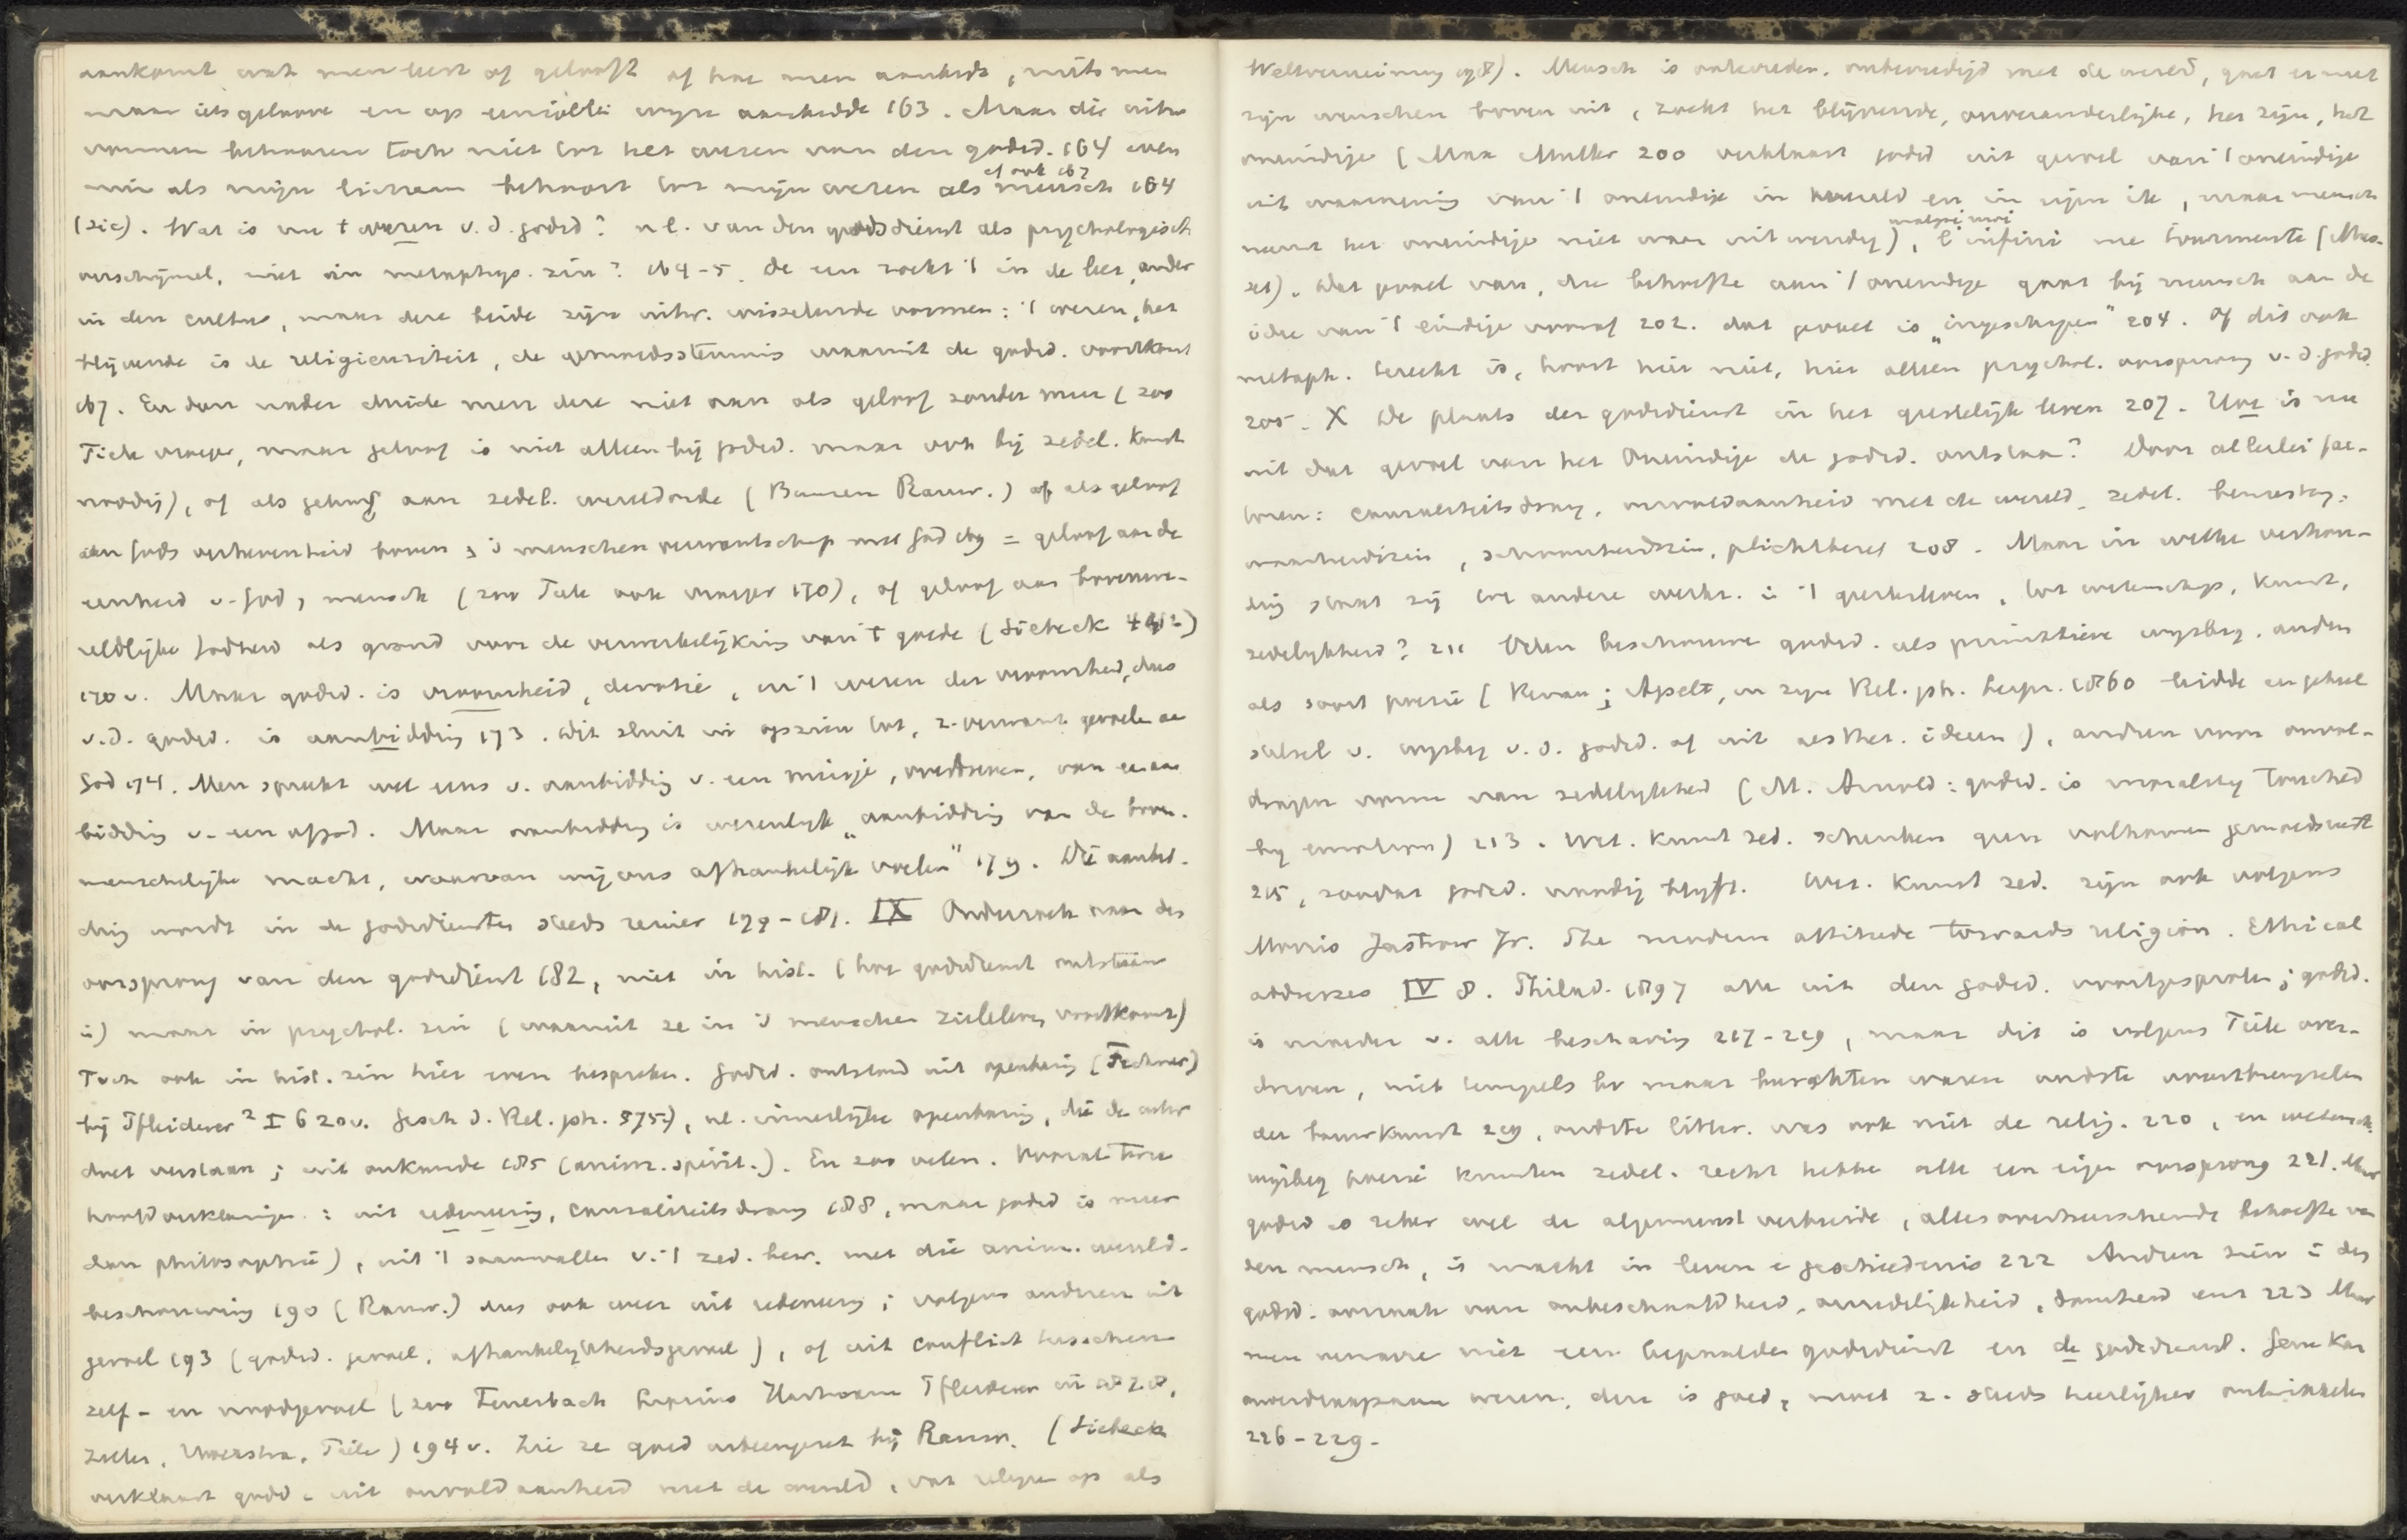 aankomt wat men leert of gelooft of hoe men aanbidt, mits men
maar iets geloove en op eenigerlei wijze aanbidde 163. Maar die uitw.
vormen behooren toch niet tot het wezen van den godsd. 164 even
min als mijn lichaam behoort tot mijn wezen als mensch 164
cf ook 167
(sic). Wat is nu 't wezen v. d. godsd? nl. van den godsdienst als psychologisch
verschijnsel, niet in metaphys. zin? 164-5. De een zoekt 't in de leer, ander
in den cultus, maar deze beide zijn uitw. wisselende vormen: 't wezen, het
blijvende is de religieusiteit, de gemoedsstemming waaruit de godsd. voortkomt
167. En dan nader duide men deze niet aan als geloof zonder meer (zoo
Tiele vroeger, maar geloof is niet alleen bij godsd. maar ook bij zedel. kunst
noodig), of als geloof aan zedel. wereldorde (Bauer. Rauw.) of als geloof
aan Gods verhevenheid boven & 's menschen verwantschap met God 169 = geloof aan de
eenheid v. God & mensch (zoo Tiele ook vroeger 170), of geloof aan bovenwe-
reldlijke Godheid als grond voor de verwerkelijking van 't goede (Siebeck 442)
170 v. Maar godsd. is vroomheid, devotie, en 't wezen der vroomheid, dus
v. d. godsd. is aanbidding 173. Dit sluit in opzien tot, z. verwant gevoelen aan
God 174. Men spreekt wel eens v. aanbidding v. een meisje, van aan
bidding v. een afgod. Maar aanbidding is wezenlijk „aanbidding van de boven-
menschelijke macht, waarvan wij ons afhankelijk voelen" 179. Die aanbid-
ding wordt in de godsdiensten steeds reiner 179-181. IX Onderzoek naar den
oorsprong van den godsdienst 182, niet in hist. (hoe godsdienst ontstaan
is) maar in psychol. zin (waaruit ze in 's menschen zieleleven voortkomt)
Toch ook in hist. zin hier even besproken. Godsd. ontstond uit openbaring (Fechner)
bij Pfleiderer² I 620 v. Gesch d. Rel. ph. 575), nl. innerlijke openbaring, die de uitw
doet verstaan; uit onkunde 185 (anim. spirit.). En zoo velen. Vooral twee
hoofdverklaringen: uit redeneering, causaliteitsdrang 188, maar godsd is meer
dan philosophie), uit 't saamvallen v. 't zed. bew. met die anim. wereld-
beschouwing 190 (Rauw.) dus ook weer uit redeneering; volgens anderen uit
gevoel 193 (godsd. gevoel, afhankelijkheidsgevoel), of uit conflict tusschen
zelf- en noodgevoel (zoo Feuerbach Lipsius Hartmann Pfleiderer in 1878,
Zeller, Hoekstra, Tiele) 194 v. Zie ze goed uiteengezet bij Rauw. (Siebeck
verklaart godsd. uit onvoldaanheid met de wereld, vat religie op als
Weltverneinung 198). Mensch is ontevreden, onbevredigd met de wereld, gaat er met
zijn wenschen boven uit, zoekt het blijvende, onveranderlijke, het zijn, het
oneindige (Max Muller 200 verklaart godsd uit gevoel van 't oneindige
uit waarneming van 't oneindige in wereld en in zijn ik, maar mensch
neemt het oneindige niet waar uitwendig), l'infini me tourmente (Mus-
malgré moi
set). Dat gevoel van, die behoefte aan 't oneindige gaat bij mensch aan de
idee van 't eindige vooraf 202. dat gevoel is „ingeschapen" 204. Of dit ook
metaph. terecht is, hoort hier niet, hier alleen psychol. oorsprong v. d. godsd.
205. X De plaats der godsdienst in het geestelijk leven 207. Hoe is nu
uit dat gevoel van het Oneindige de godsd. ontstaan? Door allerlei fac-
toren: causaliteitsdrang, onvoldaanheid met de wereld, zedel. bewustzijn,
waarheidszin, schoonheidszin, plichtbesef 208. Maar in welke verhou-
ding staat zij tot andere werkz. in 't geestesleven, tot wetenschap, kunst,
zedelijkheid? 211 Velen beschouwen godsd. als primitieve wijsbeg. anderen
als soort poezie (Renan; Apelt, in zijn Rel. ph. Leipz. 1860 leidde en geheel
stelsel v. wijsbeg v. d. godsd. af uit aesthet. ideeën), anderen voor onvol-
dragen vorm van zedelijkheid (M. Arnold: godsd. is morality touched
by emotion) 213. Wet. kunst zed. schenken geen volkomen gemoedsrust
215, zoodat godsd. noodig blijft. Wet. kunst zed. zijn ook volgens
Morris Jastrow Jr. The modern attitude towards religion. Ethical
addresses IV 8. Philad. 1897 alle uit den godsd. voortgesproten; godsd.
is moeder v. alle beschaving 217-219, maar dit is volgens Tiele over-
dreven, niet tempels bv maar burchten waren oudste voortbrengselen
der bouwkunst 219, oudste litter. was ook niet de relig. 220, en wetensch.
wijsbeg poezie kunsten zedel. recht hebben alle een eigen oorsprong 221. Maar
godsd is zeker wel de algemeenst verbreide, allesoverheerschende behoefte van
den mensch, is macht in leven & geschiedenis 222 Anderen zien in den
godsd. oorzaak van onbeschaafdheid, onzedelijkheid, domheid enz 223 Maar
men verwarre niet een bepaalden godsdienst en de godsdienst. Gene kan
onverdraagzaam wezen, deze is goed, moet z. steeds heerlijker ontwikkelen
226-229.